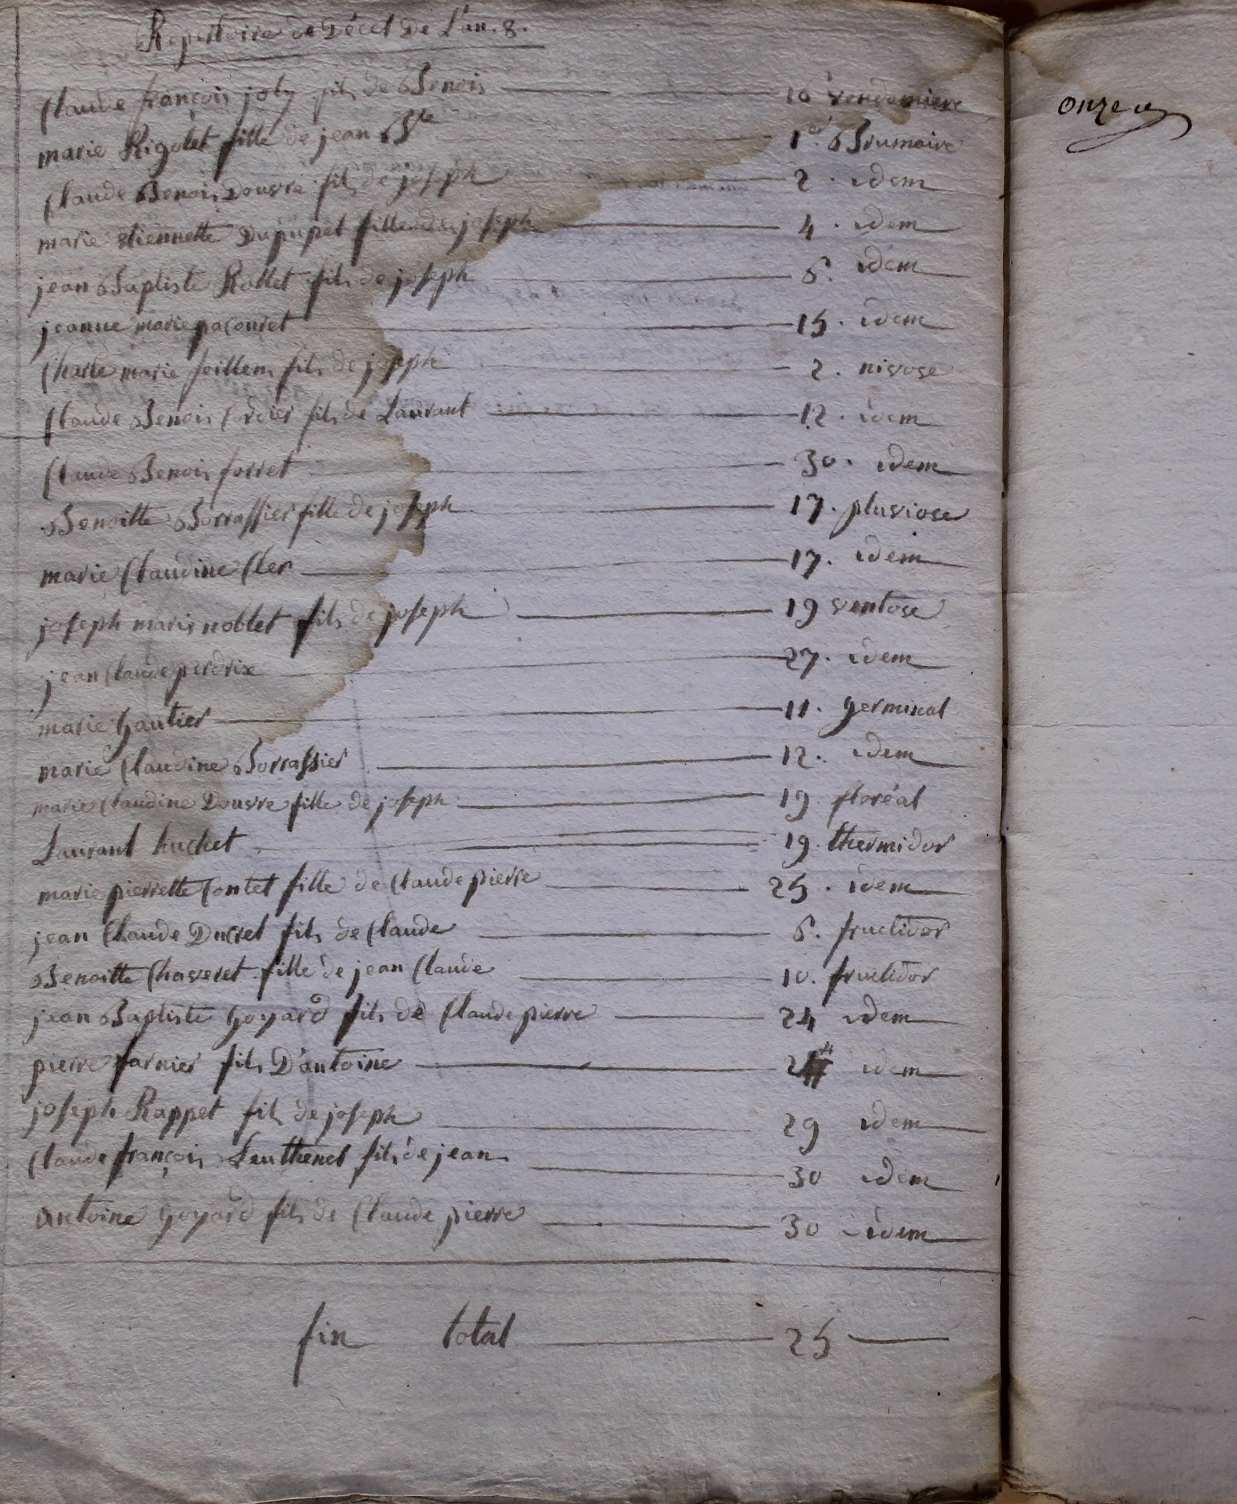 Repertoire de Décet De L'an. 8.
Claude françois joly fils de Benois 10 vendemiere
marie Rigolet fille de jean Bte 1er Brumaire
Claude Benois Douvre fils de joseph 2. idem
marie etiennette Dupupet fille de joseph 4. idem
jean Baptiste Rollet fils de joseph 6. idem
jeanne marie pacouret 15. idem
Charle marie feillens fils de joseph 2. nivose
Claude Benois Cordier fils de Laurant 12. idem
Claude Benois forret 30. idem
Benoitte Borrassier fille de joseph 17. pluviose
marie Claudine Cler 17. idem
joseph marie noblet fils de joseph 19 ventose
jean Claude perdrix 27. idem
marie gautier 11. germinal
marie Claudine Borrassier 12. idem
marie Claudine Douvre fille de joseph 19. floréal
Laurant huchet 19. thermidor
marie pierrette Contet fille de Claude pierre 25. idem
jean Claude Ducret fils de Claude 6. fructidor
Benoitte Chaveret fille de jean Claude 10. fructidor
jean Baptiste goyard fils de Claude pierre 24 idem
pierre farnier fils D'antoine idem
joseph Rappet fils de joseph 29 idem
Claude françois Leuthenet fils de jean 30 idem
antoine goyard fils de Claude pierre 30 idem
fin total 25
onze